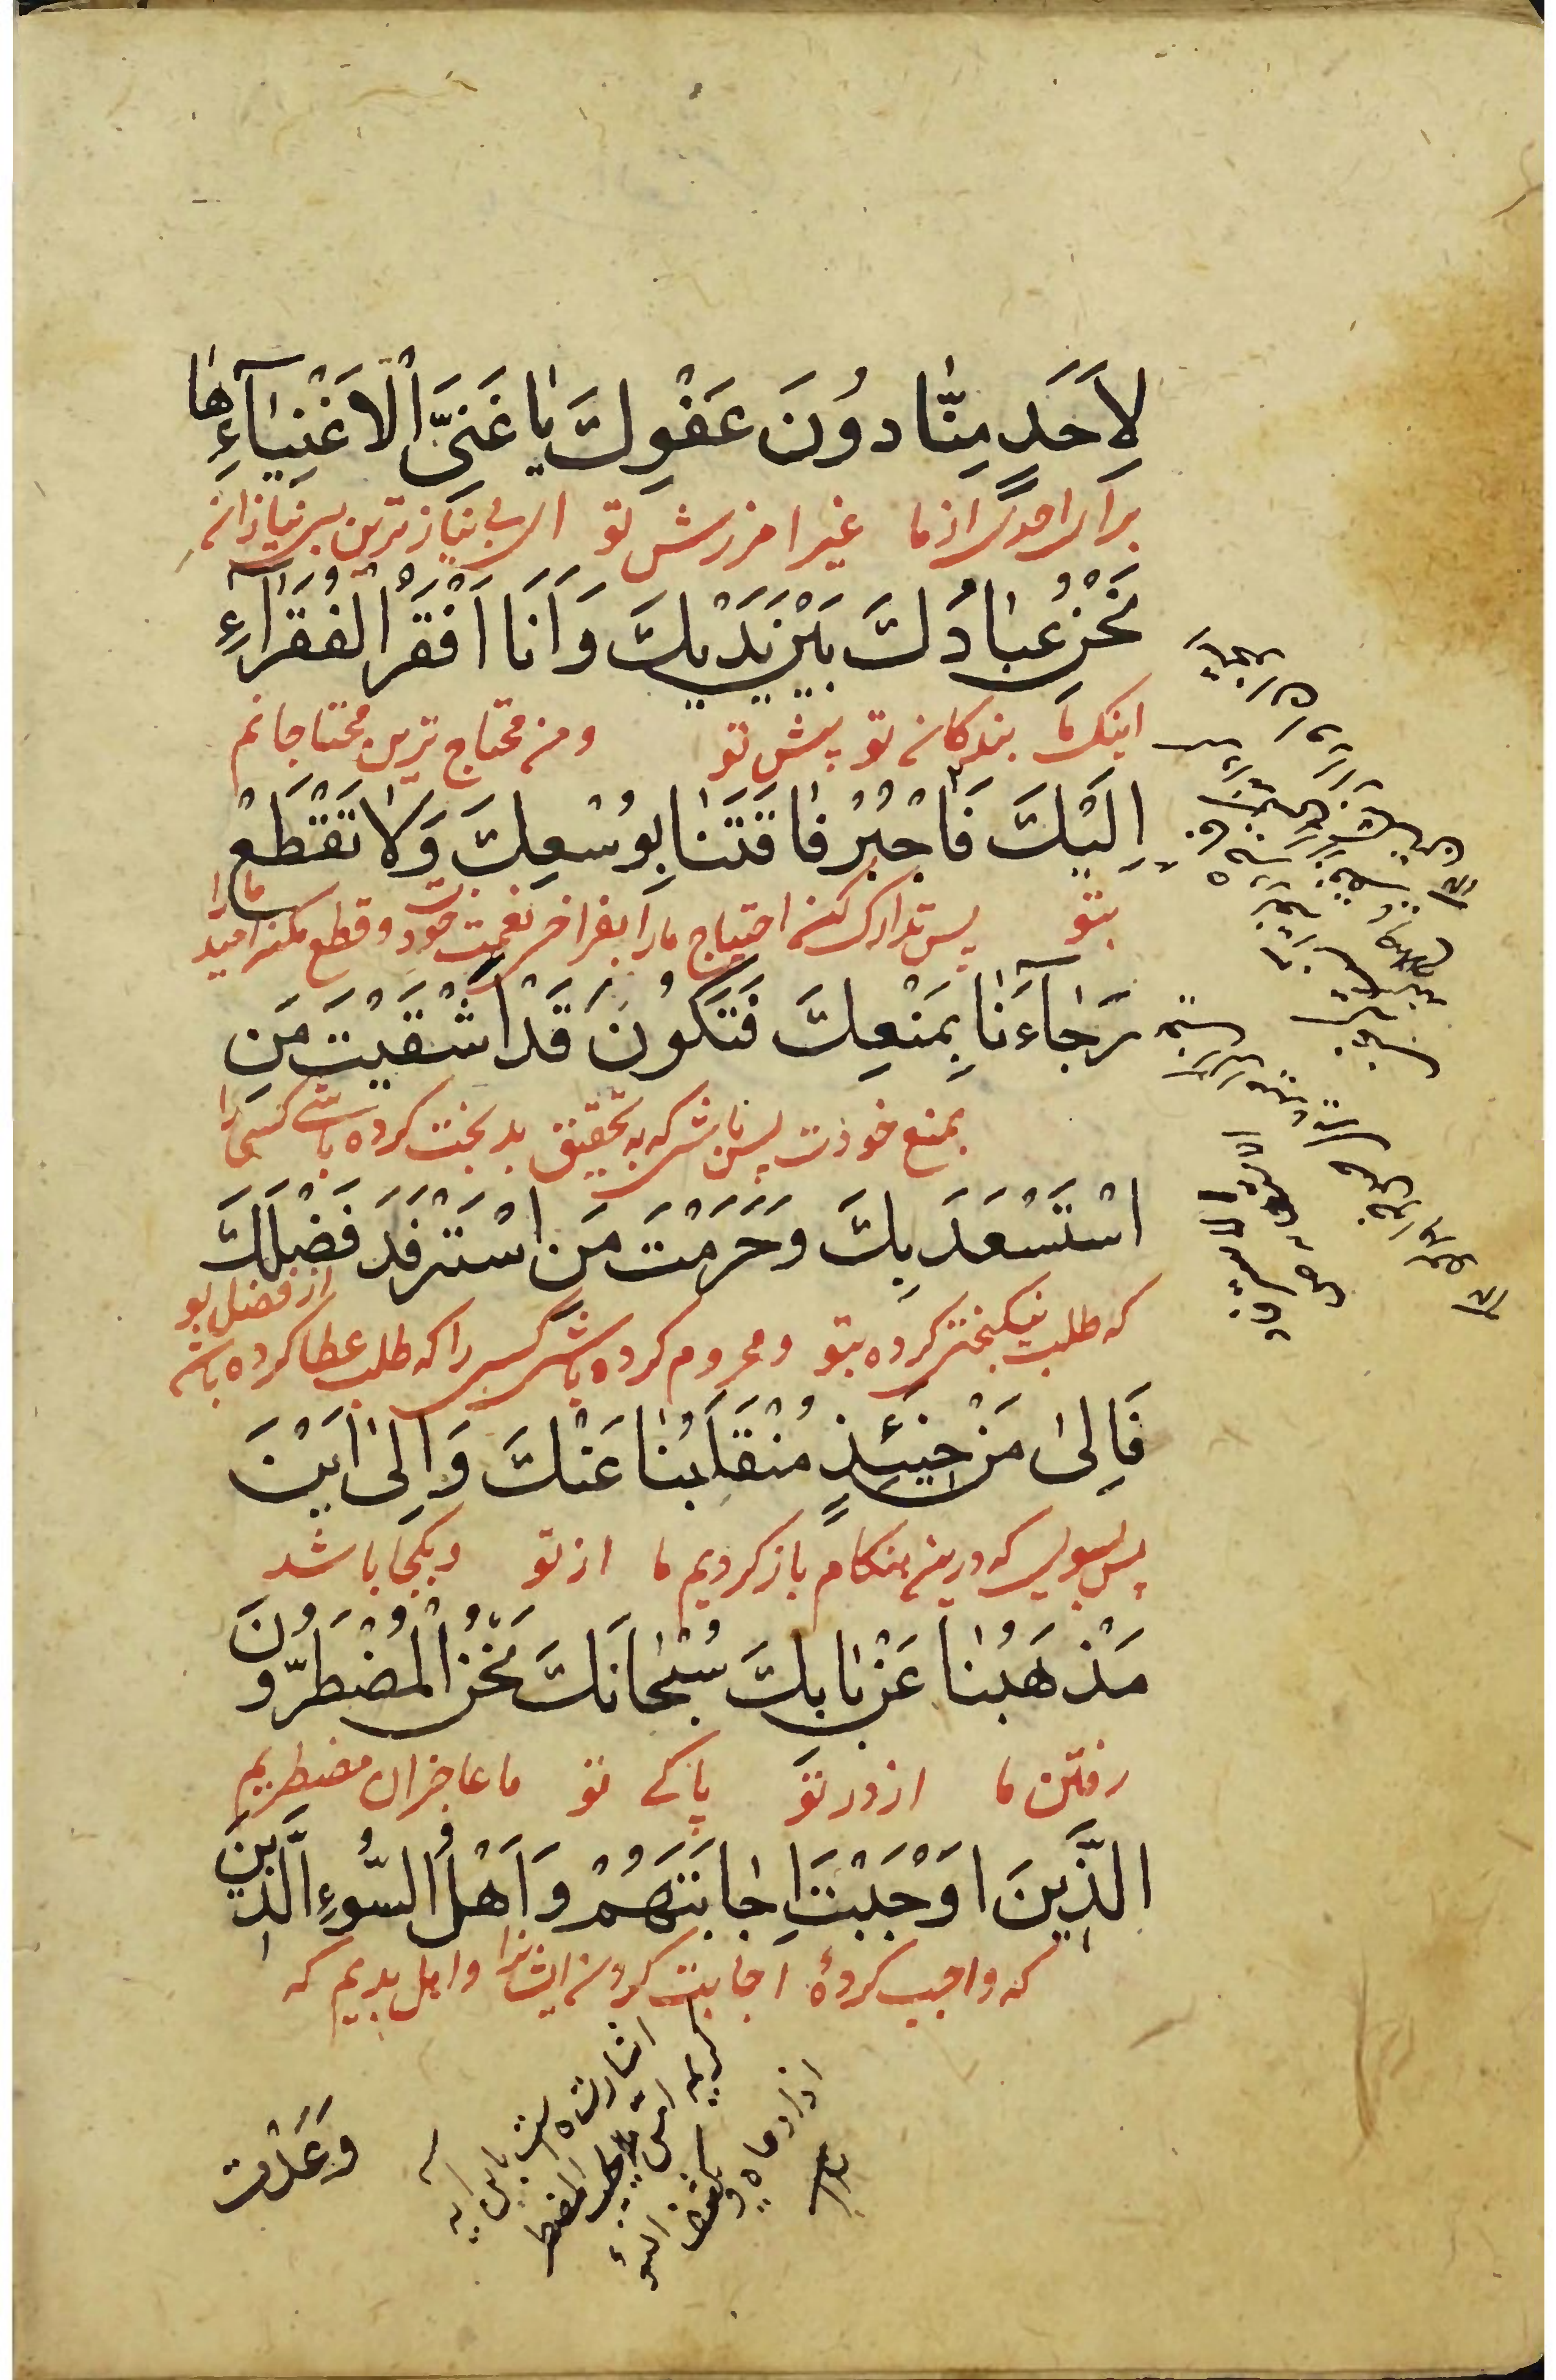 لِاَحَدٍ مِنّٰا دوُنَ عَفْوِكَ يٰا غَنِىَّ الْاَغْنِيٰآءِ هٰا
برای احدی از ما غیر امرزش تو ای بی نیاز ترین بی نیازان
نَحْنُ عِبٰادُكَ بَيْنَ يَدَيْكَ وَاَنَا اَفْقَرُ الْفُقَرٰآءِ
اینک ما بندکان تو پیش تو و من محتاج ترین محتاجانم
اِلَيْكَ فَاجْبُرْ فٰاقَتَنٰا بِوُسْعِكَ وَلٰا تَقْطَعْ
بتو پس تدارک کن احتیاج ما را بفراخی نعمت خود و قطع مکن امید ما را
رَجٰآءَنٰا بِمَنْعِكَ فَتَكُونَ قَدْ اَشْقَيْتَ مَنِ
بمنع خودت پس باشی که به تحقیق بدبخت کرده باشی کسی را
اسْتَسْعَدَ بِكَ وَحَرَمْتَ مَنِ اسْتَرْفَدَ فَضْلَكَ
که طلب نیکبختی کرده بتو و محروم کرده باشی کسی را که طلب عطا کرده باشد از فضل تو
فَاِلىٰ مَنْ حِينَئِذٍ مُنْقَلَبُنٰا عَنْكَ وَاِلىٰ اَيْنَ
پس بسوی که درین هنکام باز کردیم ما از تو و بکجا باشد
مَذْهَبُنٰا عَنْ بٰابِكَ سُبْحٰانَكَ نَحْنُ الْمُضْطَرُّونَ
رفتن ما از در تو پاکی تو ما عاجزان مضطریم
الَّذِينَ اَوْجَبْتَ اِجٰابَتَهُمْ وَاَهْلُ السُّوءِ الَّذِينَ
که واجب کردۀ اجابت کردن ایشانرا و اهل بدیم که
اشارتست باین ایه
کریمه امن یجیب المضطر
اذا دعاه و یکشف السوء
وَعَدْتَ